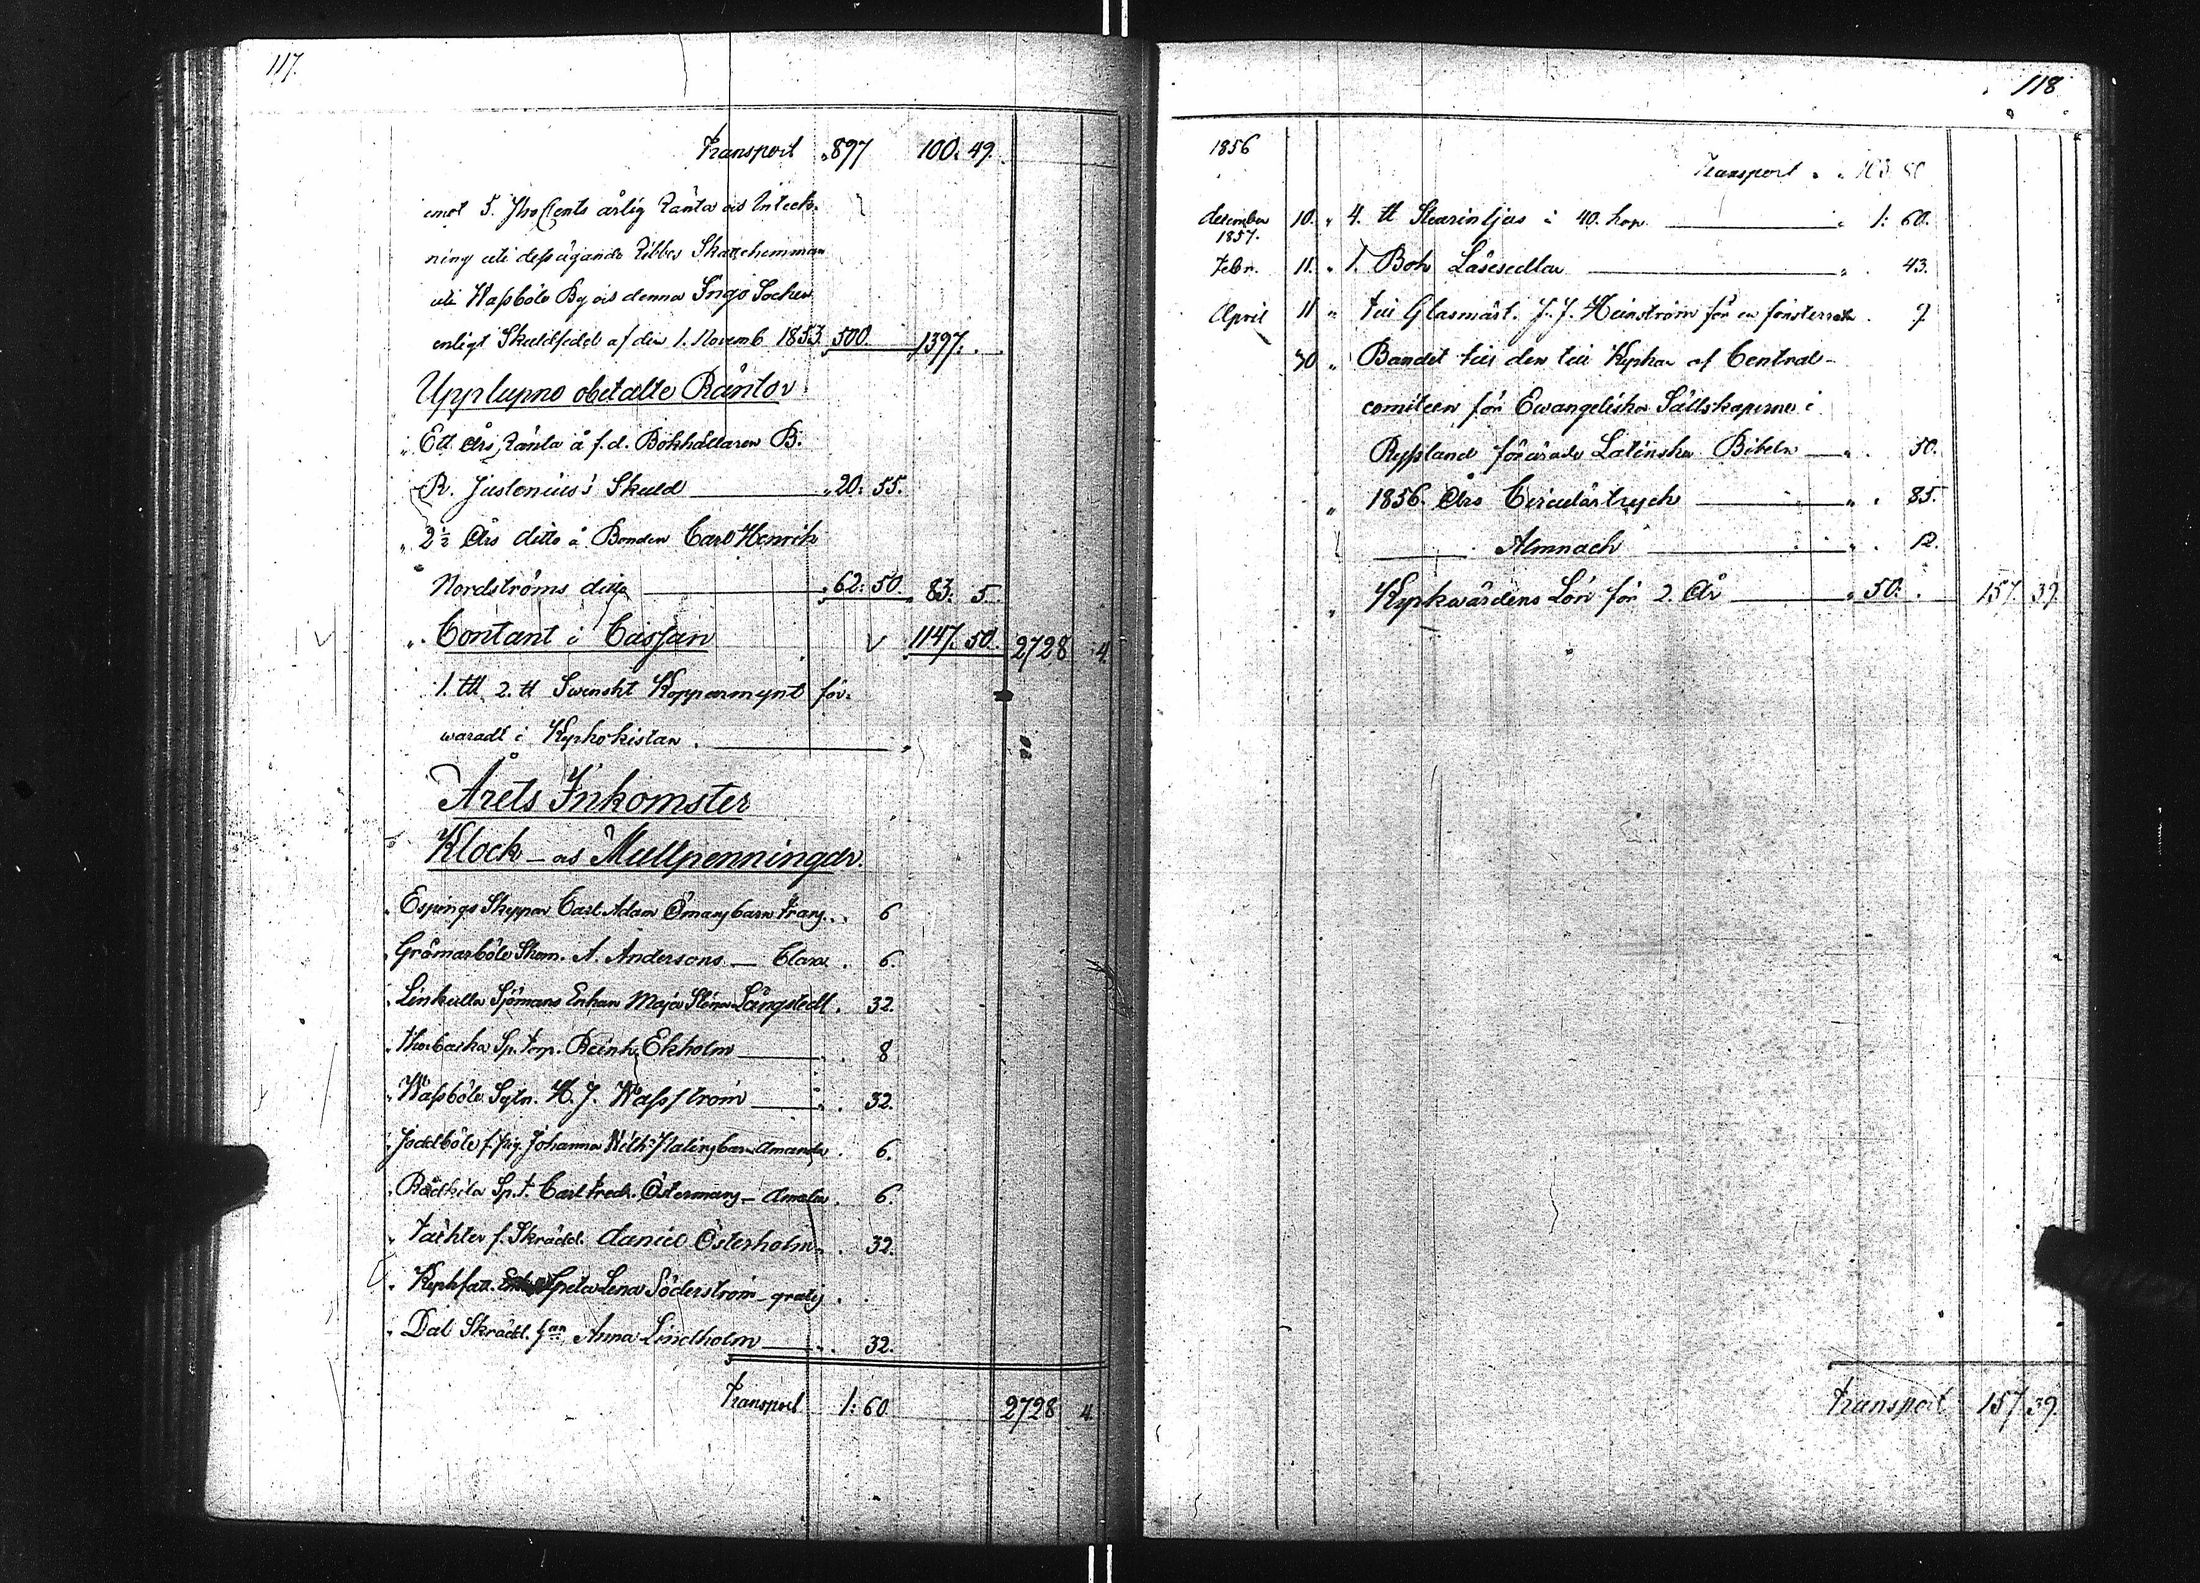 117.
Transport „ 897 100. 49.
emot 5. ProCents årlig Ränta och Inteck-
ning uti dess ägande Ribbes Skattehemman
uti Wassböle By och denna Ingo Socken
enligt Skuldsedel af den 1. Novemb. 1853. 500. 1397.
Upplupne obetalte Räntor
„ Ett Års Ränta å f.d. Bokhållaren B.
R. Justenius's Skuld „ 20: 55.
„ 2½ Års ditto å Bonden Carl Henrik
Nordströms ditto „ 62: 50. 83: 5.
„ Contant i Cassan 1147. 50. 2728 4.
1. ttl 2. tt Swenskt Kopparmynt för-
waradt i Kyrkokistan.
Årets Inkomster
Klock- och Mullpenningar.
„ Espings Skeppar Carl Adam Ömans barn Frans 6
„ Gromarböle Skom. A. Andersons — Clara 6.
„ Linkulla Sjömans Enkan Maja Stina Långstedt 32.
„ Thorbacka Sp. torp. Reinh. Ekholm 8
„ Wassböle Sytn. H. J. Wasström 32.
„ Joddböle f. pig. Johanna Wilh. barn Amanda 6.
„ Rådkila Sp.t. Carl Fredr. Östermans — Amalia 6.
„ Täckter f. Skrädd. Daniel Österholm 32.
„ Kyrkfatt. Greta Lena Söderström — gratis
„ Dal Skrädd. Anna Lindholm 32.
Transport 1: 60. 2728 4.
118
1856
Transport „ „ 103. 80
December 10. „ 4. tt Stearinljus à 40. kop „ 1: 60.
1857.
Febr. 11. „ 1. Bok Läsesedlar „ 43.
April 11 „ till Glasmäst. J. J. Heinström för en fönster 9
30 „ Bandet till den till Kyrkan af Central-
comiteen för Ewangeliska Sällskaperne i
Ryssland förärade Latinska Bibeln „ 50.
„ 1856. Års Circulärtryck „ 85.
Almnach „ 12.
„ Kyrkwärdens Lön för 2. År „ 50: 157. 39.
Transport 157. 39.